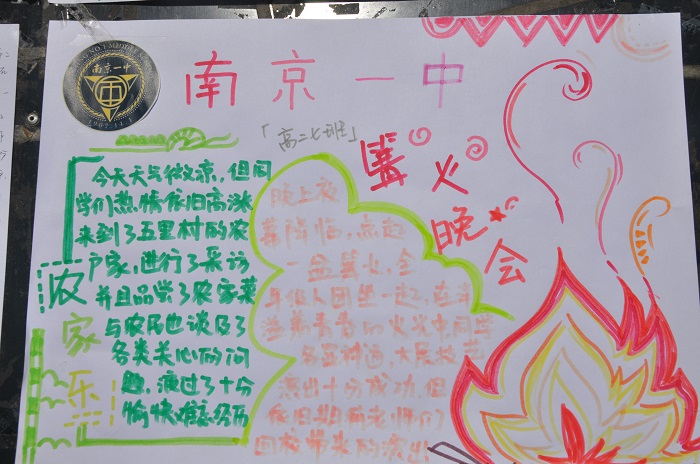 南京一中
南京一中
1907.11.1
「高二七班」
篝火
晚会
农家乐
今天天气微凉,但同
学们热情依旧高涨
来到了五里村的农
户家,进行了采访
并且品尝了农家菜
与农民也谈及了
各类关心的问
题,渡过了十分
愉快难忘经历
晚上夜
幕降临,点起
一盆篝火,全
身伍人团坐一起,在
火光中同学
演出十分成功,但
依旧期待老师们
回校带来的演出